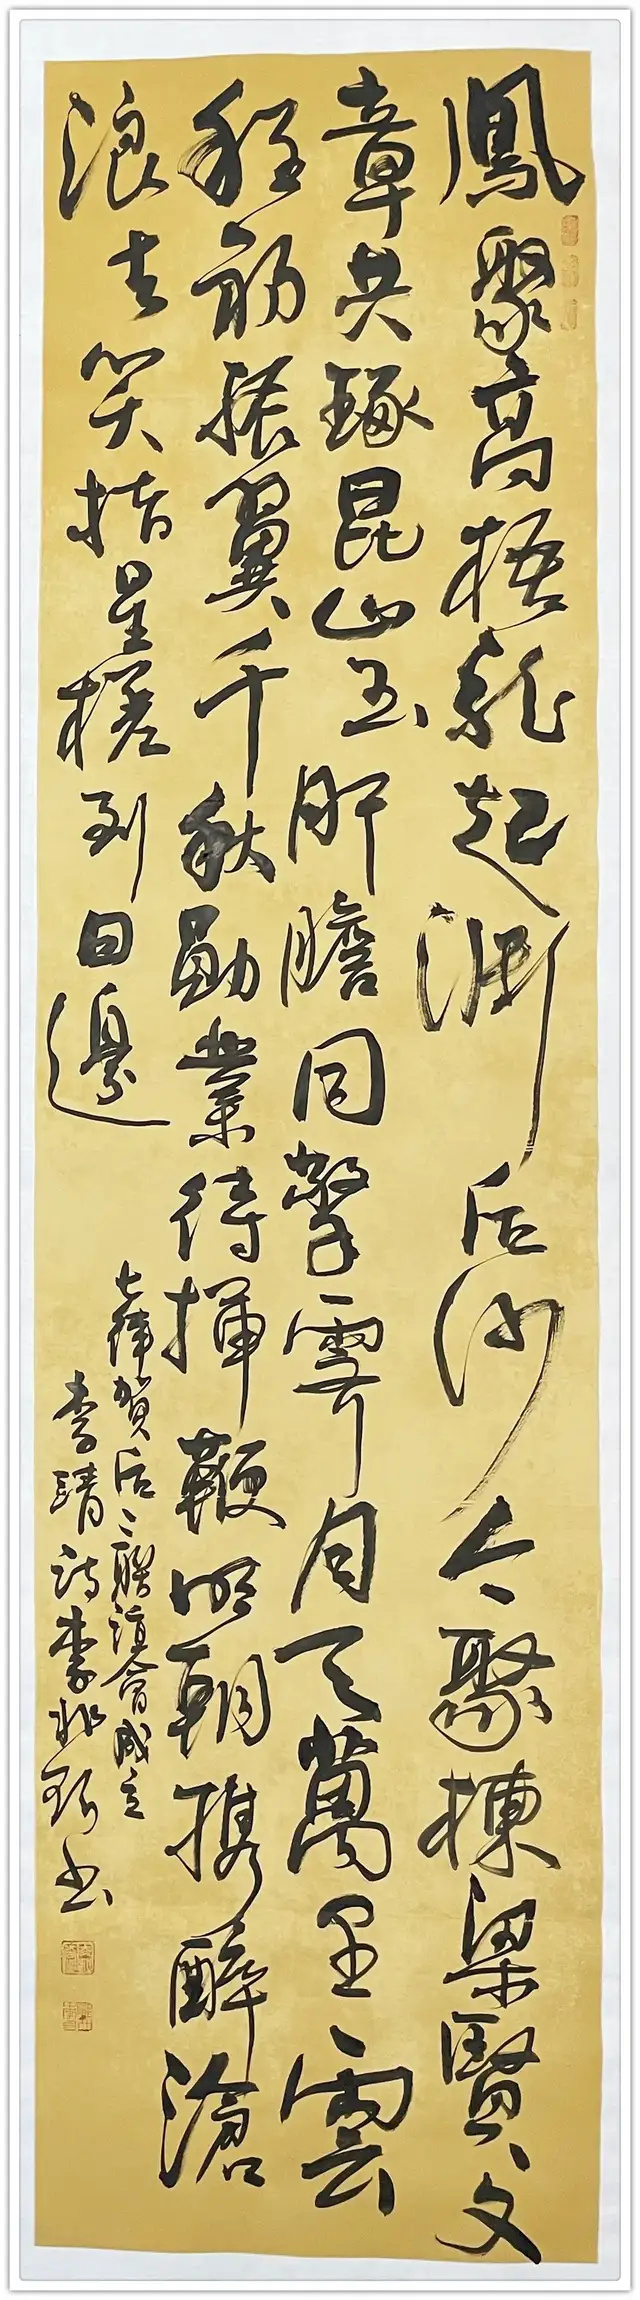 鳳聚高梧龍起淵后沙今聚棟梁賢文
章共琢昆山玉肝膽同擎霄月天萬里雲
程初振翼千秋勛業待揮鞭明朝携醉滄
浪去笑指星槎到日邊
七律賀后沙聯誼會成立
李靖詩李非珩書